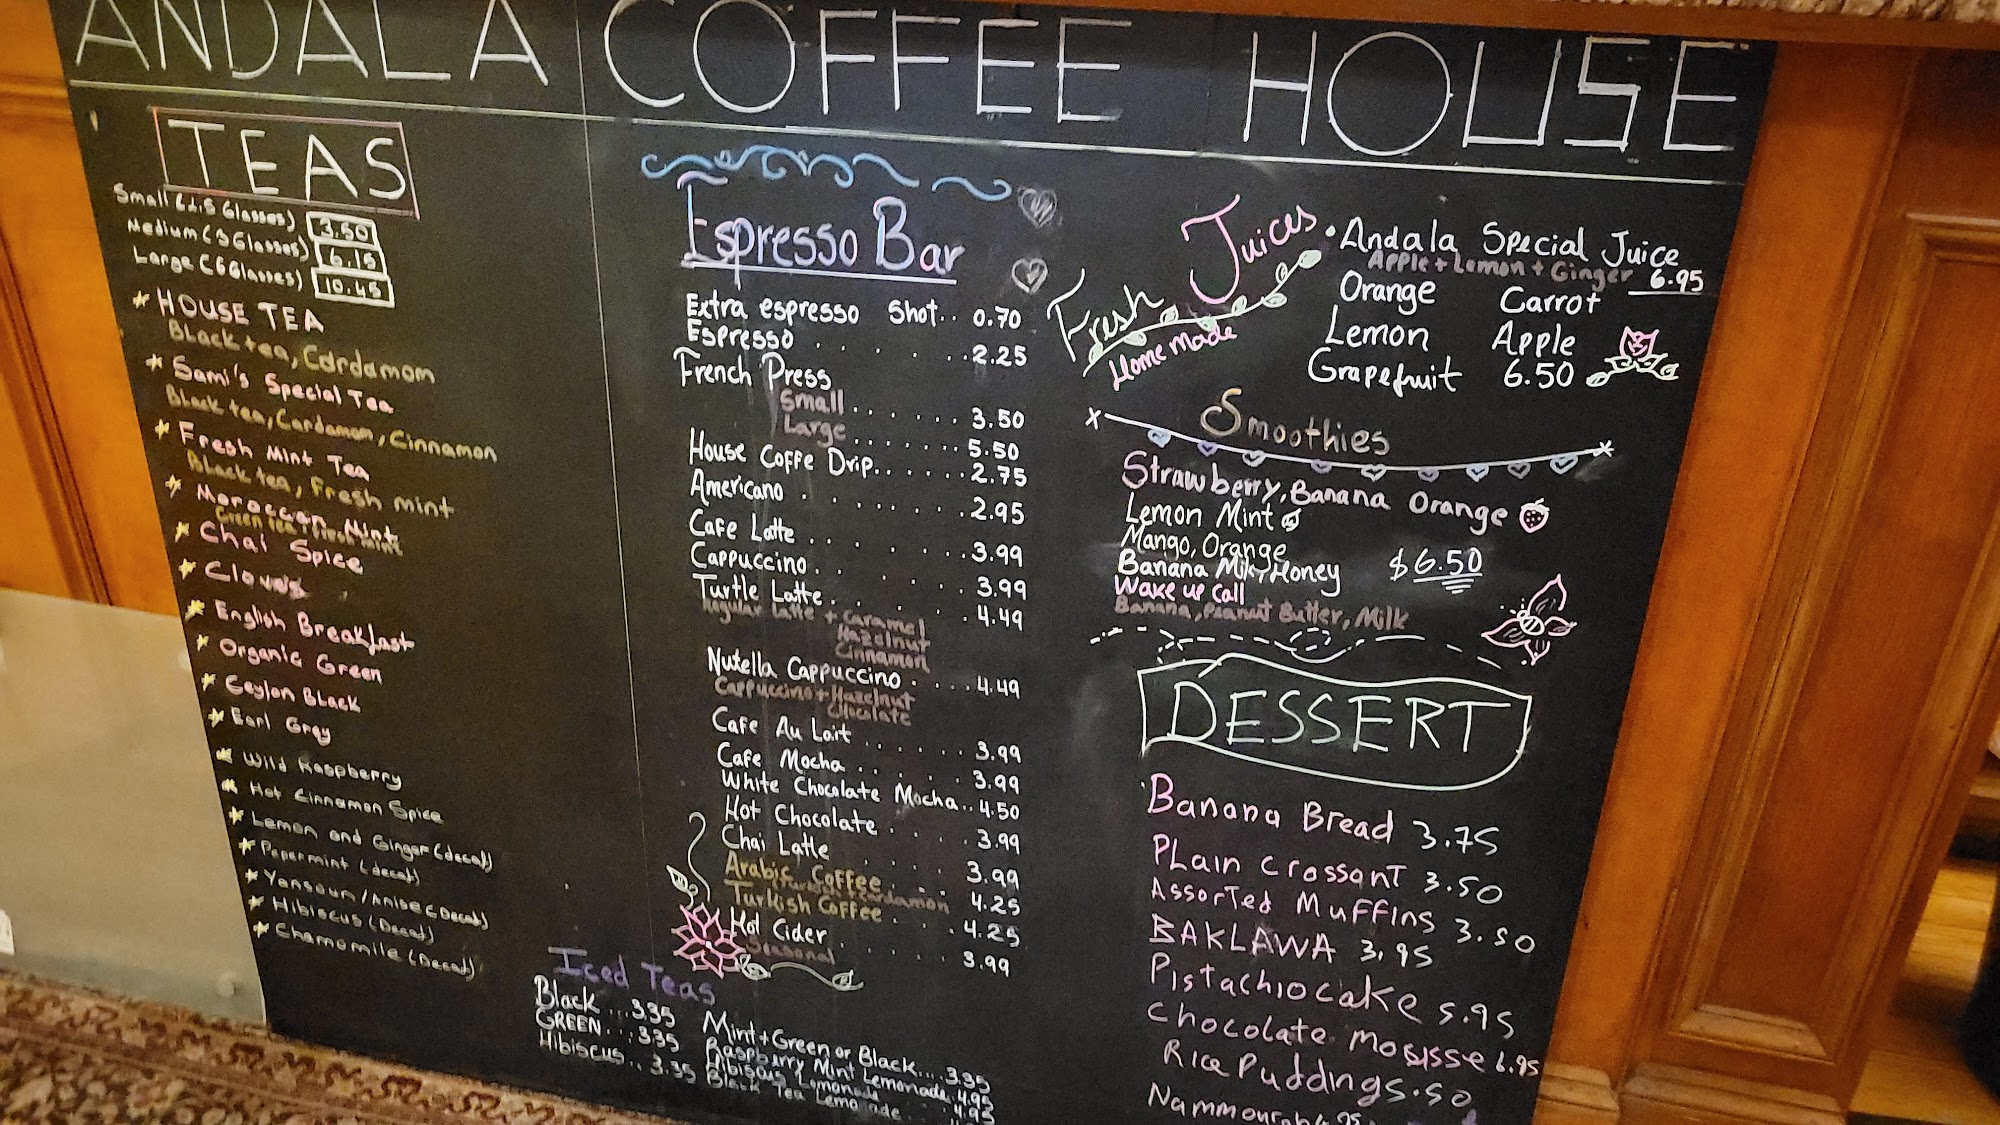 ANDALA COFFEE HOUSE
TEAS
Small (1.5 Glasses) 3.50
Medium (3 Glasses) 6.15
Large (6 Glasses) 10.45
HOUSE TEA
Black tea, Cardamom
Sami's Special Tea
Black tea, Cardamom, Cinnamon
Fresh Mint Tea
Black tea, Fresh mint
Moroccan Mint
Green tea, Fresh mint
Chai Spice
Cloves
English Breakfast
Organic Green
Ceylon Black
Earl Grey
Wild Raspberry
Hot Cinnamon Spice
Lemon and Ginger (decaf)
Pepermint (decaf)
Yansoun/Anise (Decaf)
Hibiscus (Decaf)
Chamomile (Decaf)
Espresso Bar
Extra espresso Shot.. 0.70
Espresso . . . . .. 2.25
French Press
Small ...... 3.50
Large ...... 5.50
House Coffe Drip...... 2.75
Americano . ...... 2.95
Cafe Latte . . .... 3.99
Cappuccino. . .... 3.99
Turtle Latte. . . . . 4.49
Regular Latte + Caramel
Hazelnut
Cinnamon
Nutella Cappuccino . ... 4.49
Cappuccino + Hazelnut
Chocolate
Cafe Au Lait ...... 3.99
Cafe Mocha ...... 3.99
White Chocolate Mocha.. 4.50
Hot Chocolate . . . 3.99
Chai Latte . . . . 3.99
Arabic Coffee . . . 4.25
Cardamom
Turkish Coffee . . . 4.25
Hot Cider . . . . 3.99
Seasonal
Iced Teas
Black ... 3.35
GREEN... 3.35
Hibiscus... 3.35
Mint + Green or Black.... 3.35
Raspberry Mint Lemonade. 4.95
Hibiscus Lemonade 4.95
Black Tea Lemonade
Fresh Juices
Home made
Andala Special Juice
Apple + Lemon + Ginger 6.95
Orange Carrot
Lemon Apple
Grapefruit 6.50
Smoothies
Strawberry, Banana Orange
Lemon Mint
Mango, Orange
Banana Milk, Honey $6.50
Wake up call
Banana, Peanut Butter, Milk
DESSERT
Banana Bread 3.75
PLain CrossanT 3.50
Assorted Muffins 3.50
BAKLAWA 3.95
Pistachio cake 5.95
Chocolate Mosusse 6.95
Rice Pudding 5.50